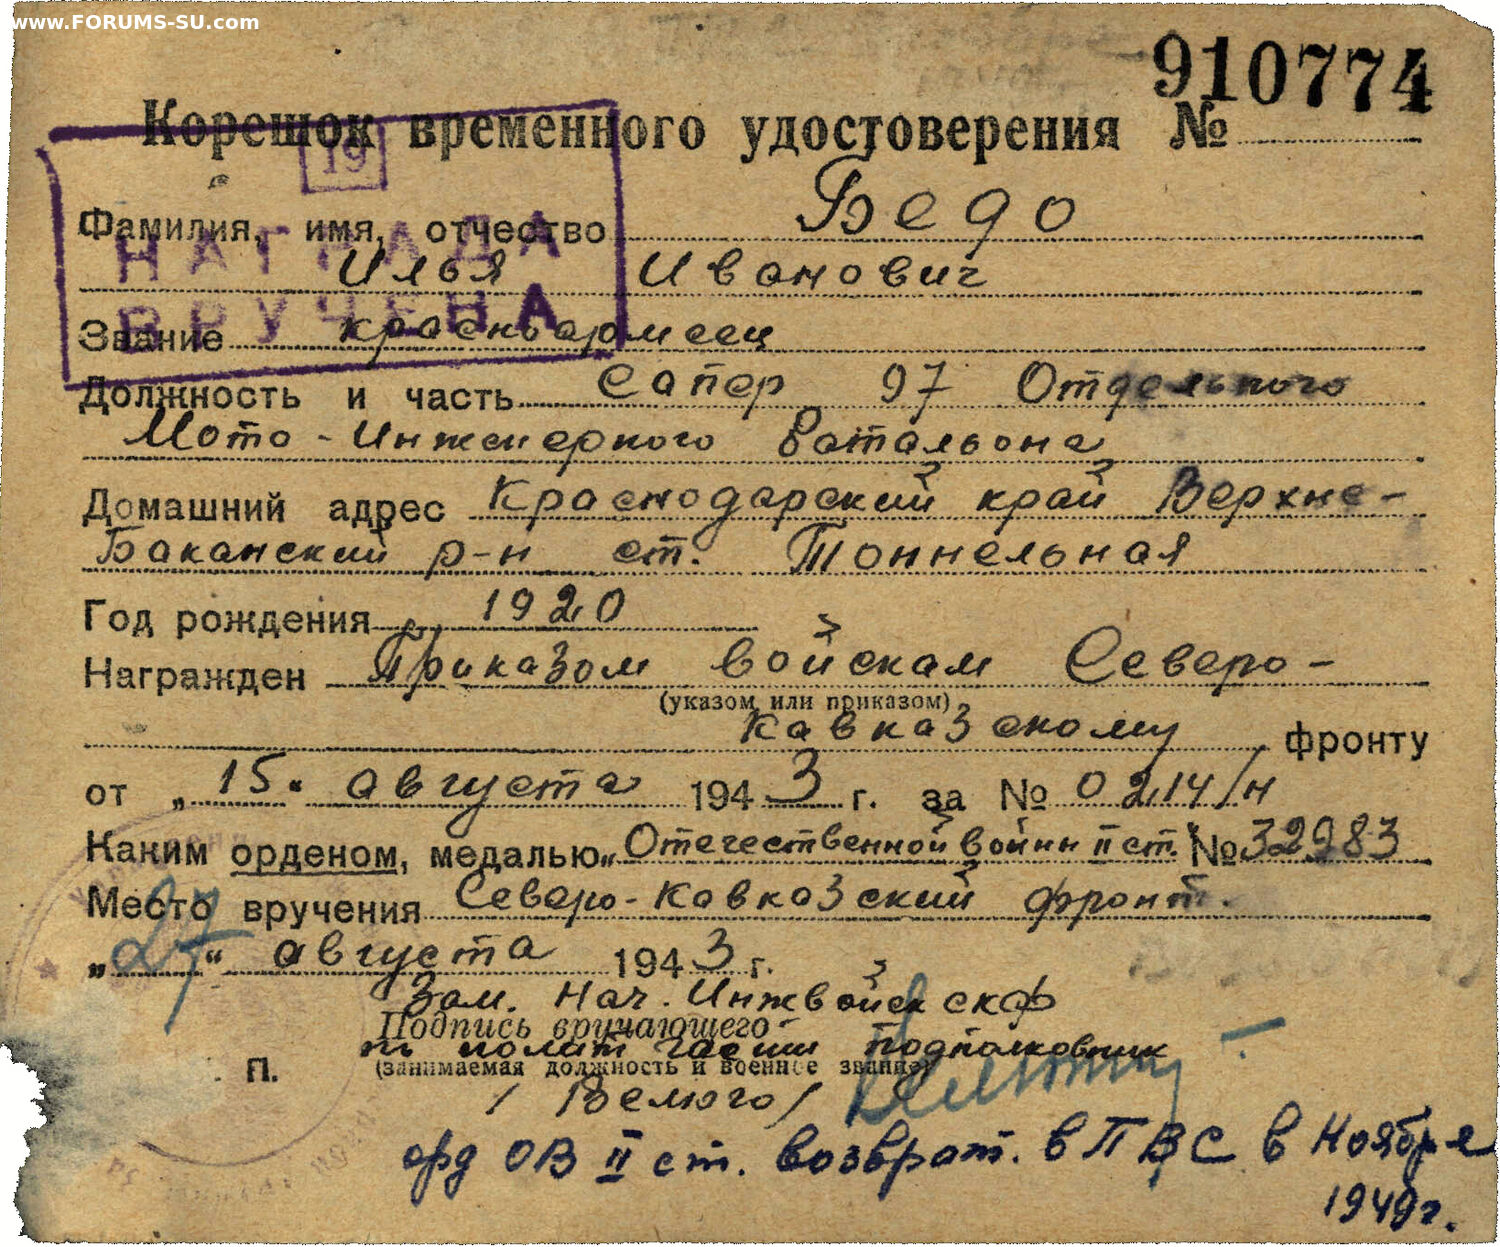 www.FORUMS-SU.com
910774
Корешок временного удостоверения №
19
НАГРАДА
ВРУЧЕНА
Фамилия, имя, отчество Бедо
Илья Иванович
Звание красноармеец
Должность и часть Сапер 97 Отдельного
Мото-Инженерного батальона
Домашний адрес Краснодарский край Верхне-
Баканский р-н ст. Тоннельная
Год рождения 1920
Награжден Приказом войскам Северо-
(указом или приказом)
Кавказскому фронту
от „15." августа 1943 г. за № 0214/н
Каким орденом, медалью „Отечественной войны II ст." № 32983
Место вручения Северо-Кавказский фронт.
„27" августа 1943 г.
Зам. Нач. Инжвойск СКФ
Подпись вручающего
по полит части подполковник
(занимаемая должность и военное звание)
П.
/ Велюго /
орд ОВ II ст. возврат. в ПВС в Ноябре
1949г.